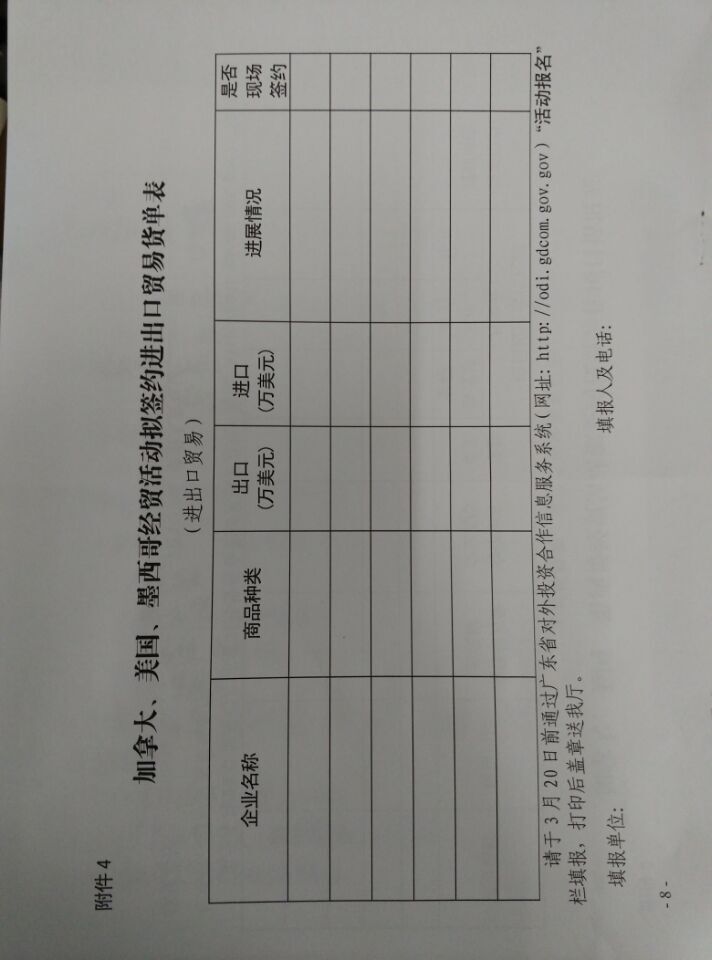 附件 4
加拿大、美国、墨西哥经贸活动拟签约进出口贸易货单表
（进出口贸易）
企业名称 商品种类 出口 进口 进展情况 是否
(万美元) (万美元) 现场
签约
请于 3 月 20 日前通过广东省对外投资合作信息服务系统（网址：http://odi.gdcom.gov.gov）“活动报名”
栏填报，打印后盖章送我厅。
填报单位： 填报人及电话：
- 8 -